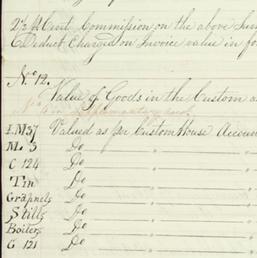 2½ ⅌ Cent. Commission on the above Sum
Deduct Charged on Invoice value in fo
No. 12.
Value of Goods in the Custom
I.M 37 Valued as per Custom House Accoun
M 3 Do " "
C 124 Do " "
Tin Do " "
Grapnels Do " "
Stills Do " "
Boilers Do " "
G 121 Do " "